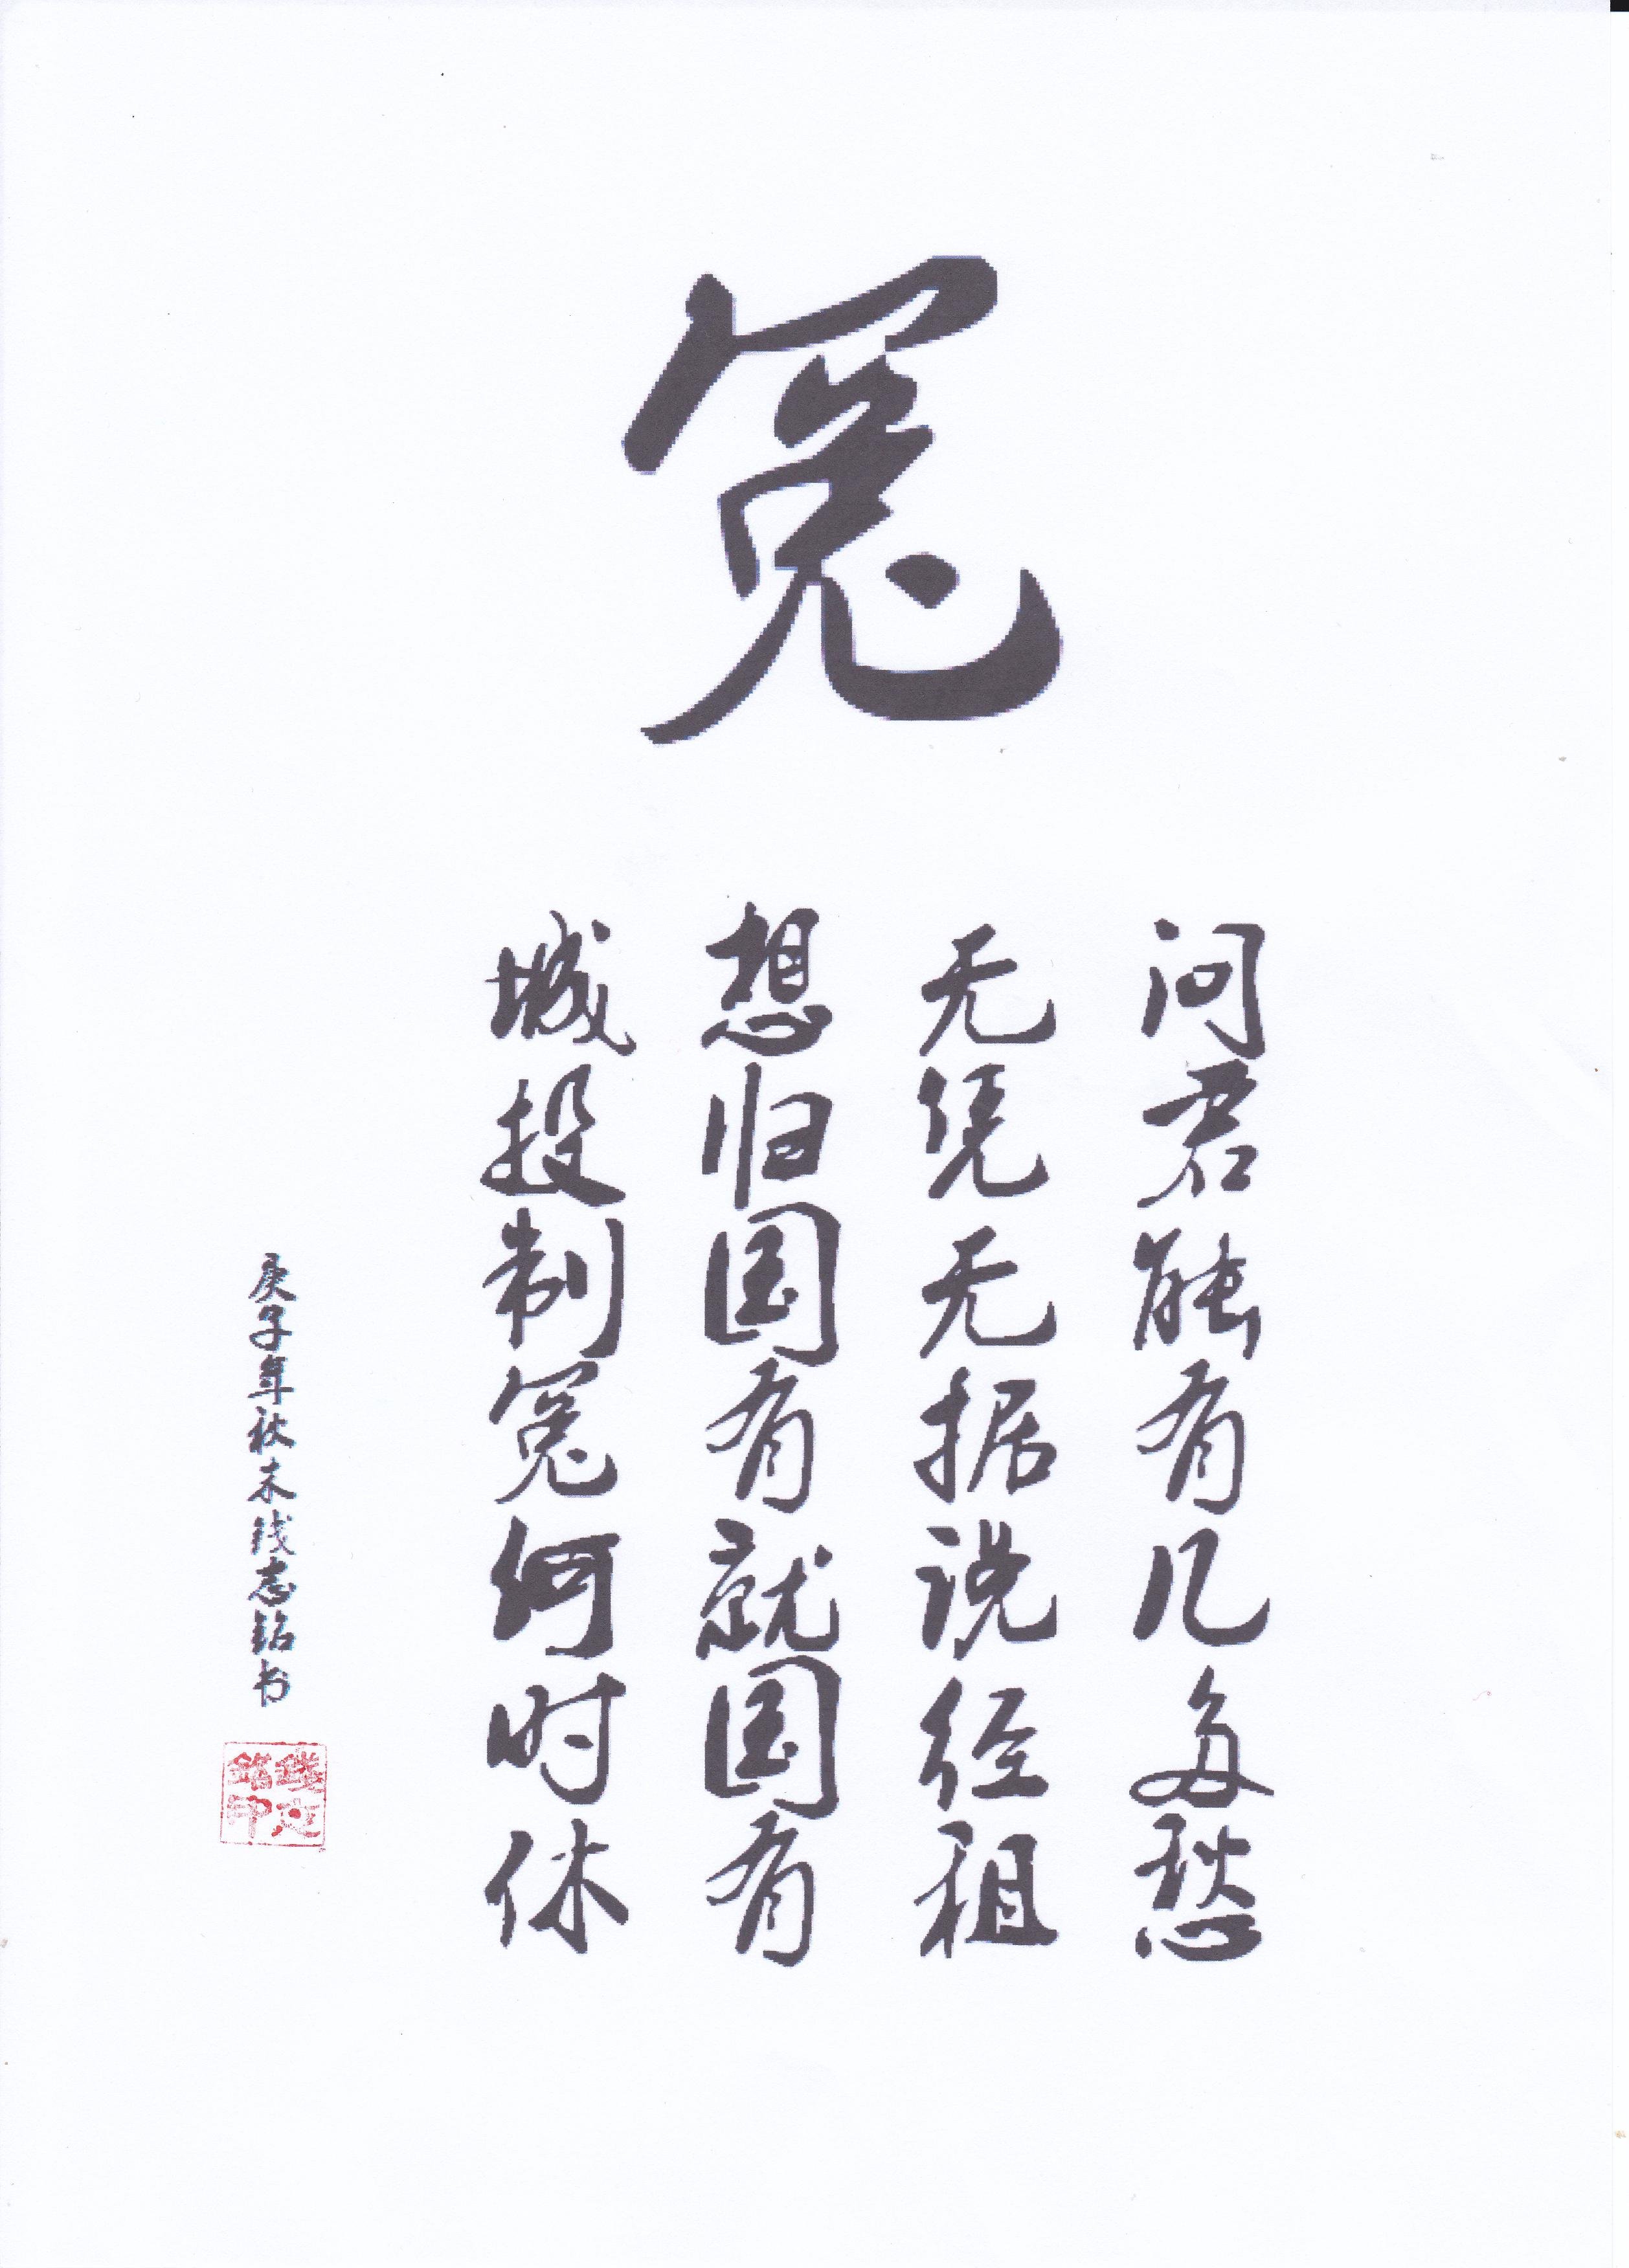 冤
问君能有几多愁
无凭无据说经租
想归国有就国有
城投制冤何时休
庚子年秋末钱志铭书
钱志铭印